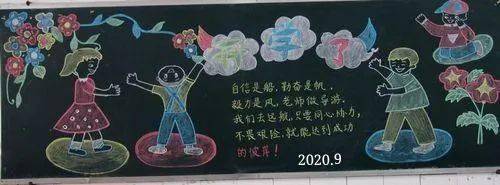 开学了
自信是船，勤奋是帆，
毅力是风，老师做导游。
我们去远航，只要同心协力，
不畏艰险，就能达到成功
的彼岸！
2020.9